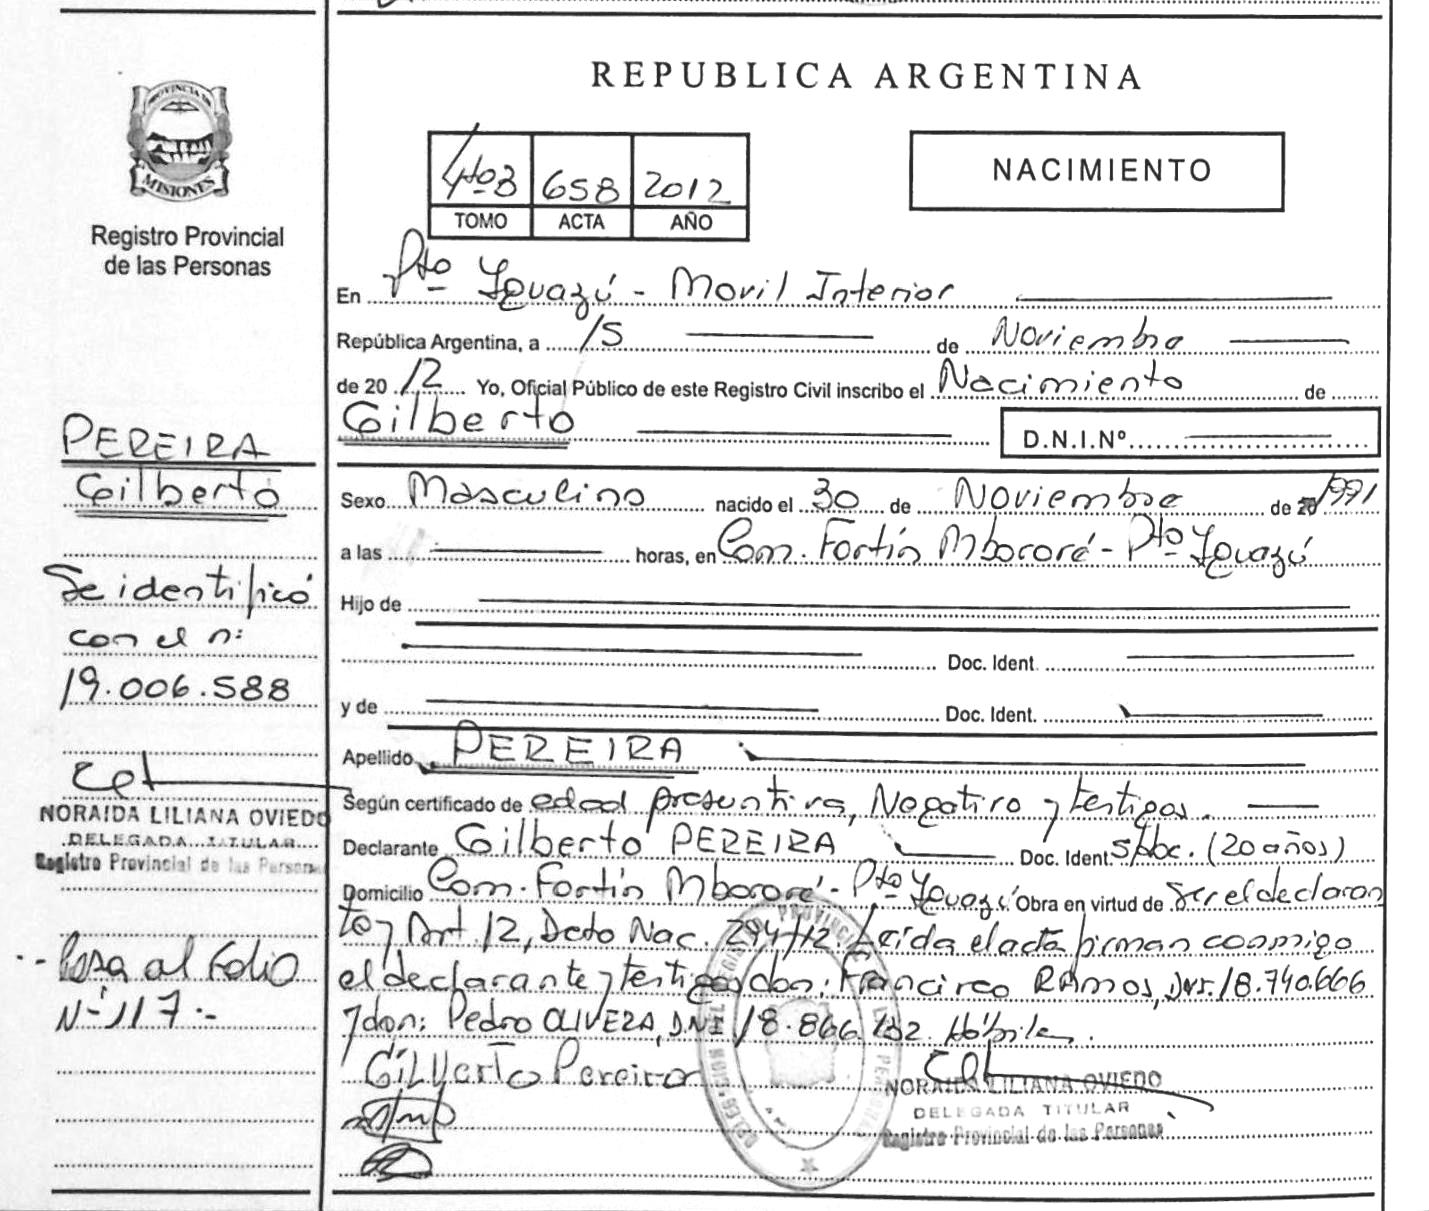 REPUBLICA ARGENTINA
PROVINCIA DE
MISIONES
Registro Provincial
de las Personas
4to 3 658 2012
TOMO ACTA AÑO
NACIMIENTO
En Pto Iguazú - Movil Interior
República Argentina, a 15 de Noviembre
de 2012 Yo, Oficial Público de este Registro Civil inscribo el Nacimiento de
Gilberto D.N.I.Nº
Sexo Masculino nacido el 30 de Noviembre de 1991
a las horas, en Com. Fortín Mbororé - Pto Iguazú
Hijo de
Doc. Ident.
y de Doc. Ident.
Apellido PEREIRA
Según certificado de edad presuntiva, Negativo y testigos.
Declarante Gilberto PEREIRA Doc. Ident. S/Doc. (20 años)
Domicilio Com. Fortín Mbororé - Pto Iguazú Obra en virtud de Ser el declaran
te y Art 12, Dcto Nac. 294/12. Leída el acta firman conmigo
el declarante y testigos don: Francisco RAMOS, DNI. 18.740.666
y don: Pedro OLIVERA, D.NI 18.866.132. Hábiles.
GiLVerTo Pereira
NORAIDA LILIANA OVIEDO
DELEGADA TITULAR
Registro Provincial de las Personas
PEREIRA
Gilberto
Se identificó
con el n:
19.006.588
NORAIDA LILIANA OVIEDO
DELEGADA TITULAR
Registro Provincial de las Personas
Pasa al Folio
Nº 117.-